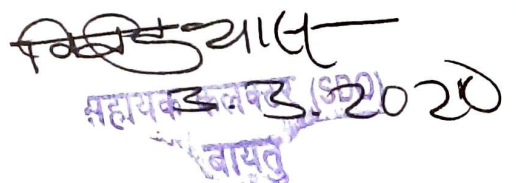 3.3.2020
सहायक कलक्टर (SDO)
बायतु